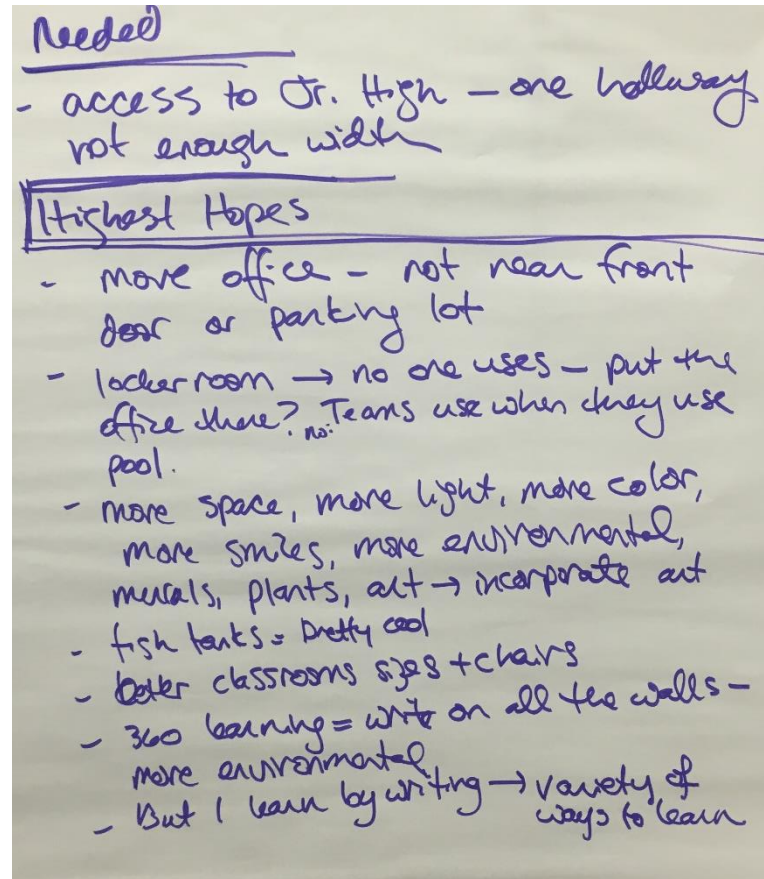 Needed
- access to Jr. High - one hallway
not enough width
Highest Hopes
- move office - not near front
door or parking lot
- locker room → no one uses - put the
office there? no: Teams use when they use
pool.
- more space, more light, more color,
more smiles, more environmental,
murals, plants, art → incorporate art
- fish tanks = pretty cool
- better classrooms sizes + chairs
- 360 learning = write on all the walls -
more environmental
- But I learn by writing → variety of
ways to learn